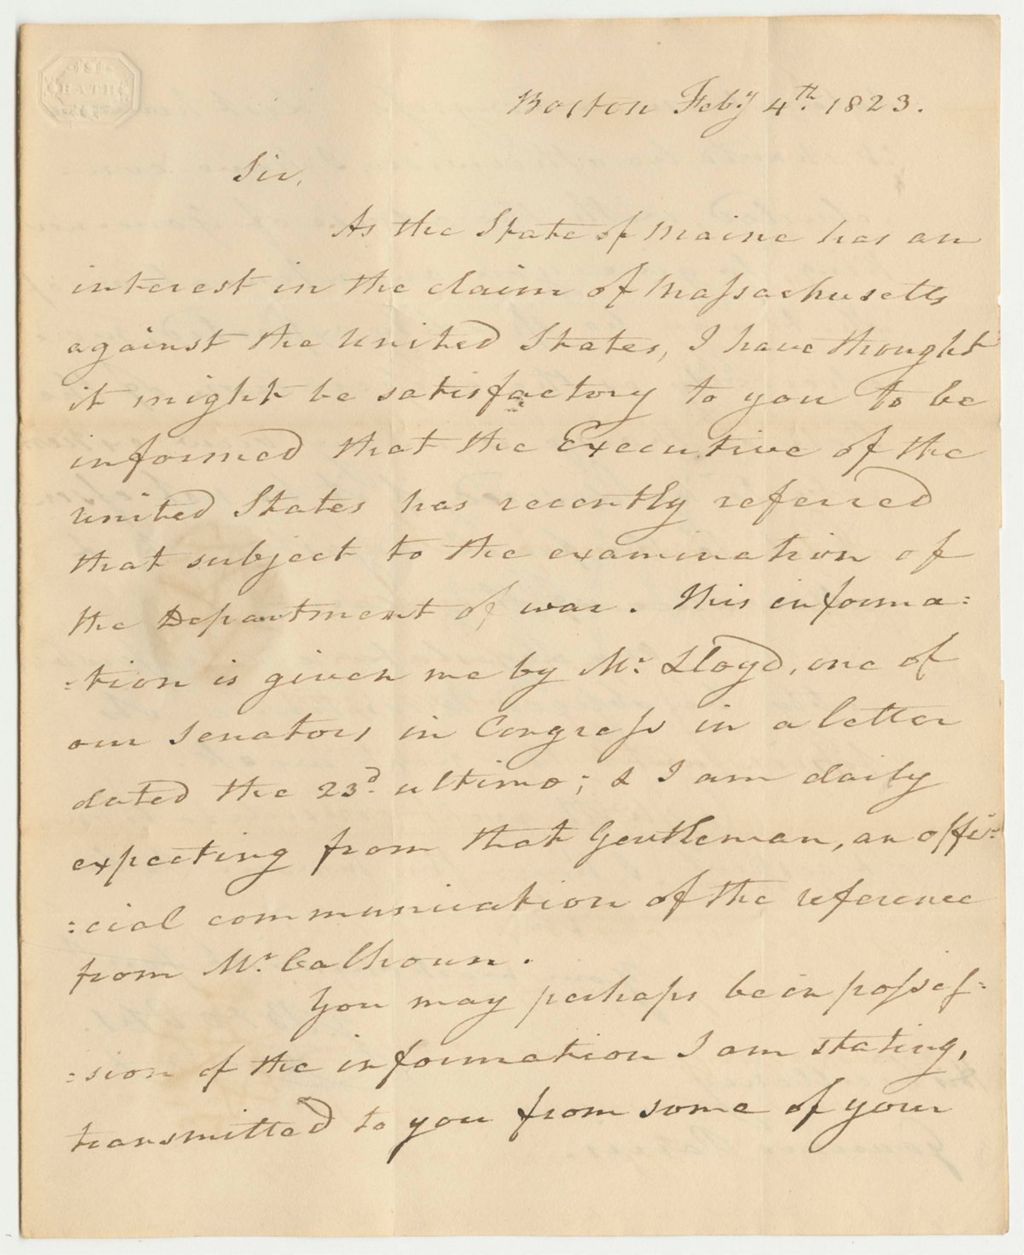 BATH
Boston Feby 4th. 1823.
Sir,
As the State of Maine has an
interest in the claim of Massachusetts
against the United States, I have thought
it might be satisfactory to you to be
informed that the Executive of the
United States has recently referred
that subject to the examination of
the Department of war. This informa=
=tion is given me by Mr. Lloyd, one of
our Senators in Congress in a letter
dated the 23d. ultimo; & I am daily
expecting from that Gentleman, an offi=
=cial communication of the reference
from Mr. Calhoun.
You may perhaps be in posses=
=sion of the information I am stating,
transmitted to you from some of your